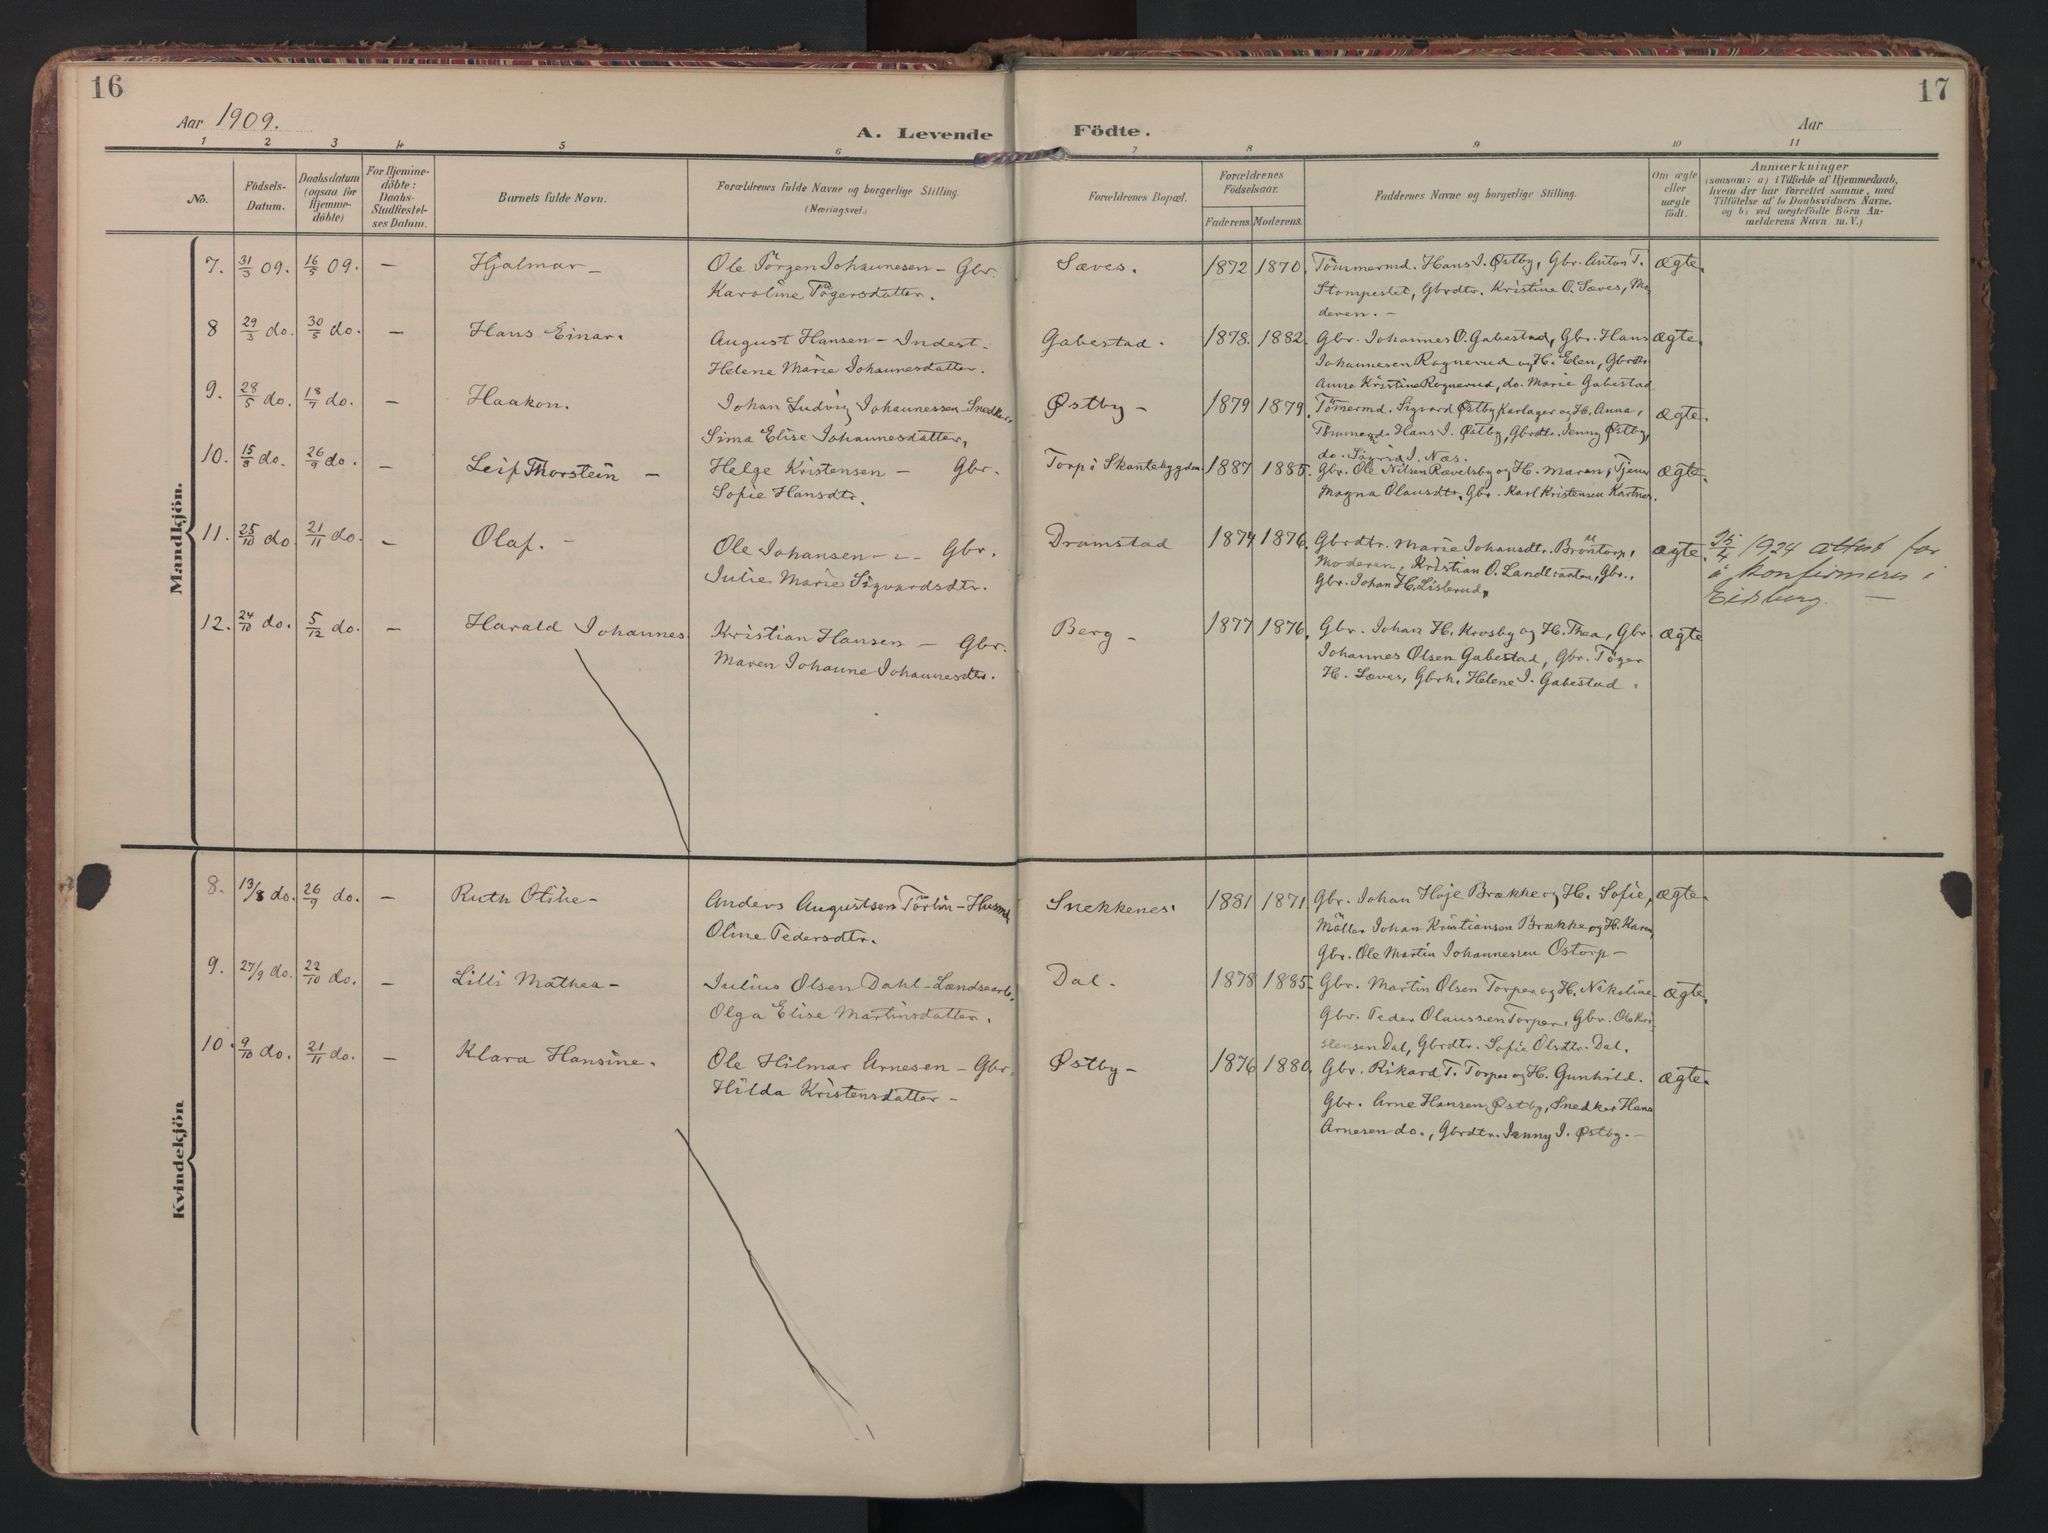 16
17
Aar 1909.
A. Levende Födte.
Aar
1 2 3 4 5 6 7 8 9 10 11
No.
Födsels-Datum.
Daabsdatum (ogsaa for Hjemmedöbte)
For Hjemmedöbte: Daabs-Stadfæstelses Datum.
Barnets fulde Navn.
Forældrenes fulde Navne og borgerlige Stilling. (Næringsvei)
Forældrenes Bopæl.
Forældrenes Födselsaar.
Faderens. Moderens.
Faddernes Navne og borgerlige Stilling.
Om ægte eller uægte födt.
Anmærkninger
(saasom: a) i Tilfælde af Hjemmedaab, hvem der har forrettet samme, med Tilföielse af to Daabsvidners Navne. og b) ved uægtefödte Börn Anmelderens Navn m. V.)
Mandkjön.
7. 31/3 09. 16/5 09. – Hjalmar – Ole Jörgen Johannesen – Gbr. Sæves. 1872 1870. Tömmermd. Hans I. Østby, Gbr. Anton T. ægte.
Karoline Tögersdatter. Stompestet, Gbrdtr. Kristine O. Sæves, Mo-
deren. –
8 29/3 do. 30/5 do. – Hans Einar. August Hansen – Inderst – Gabestad. 1878. 1882. Gbr. Johannes O. Gabestad, Gbr. Hans ægte.
Helene Marie Johannesdatter. Johannesen Rognerud og H. Elen, Gbrdtr.
Anne Kristine Rognerud, do. Marie Gabestad
9. 28/5 do. 18/7 do. – Haakon. Johan Ludvig Johannessen – Snedker. Østby – 1879 1879. Tömermd. Sigvard Østby Karlager og H. Anna, ægte.
Sima Elise Johannesdatter. Tömmermd. Hans I. Østby, Gbrdtr. Jenny Østby,
do. Sigrid I. Næs.
10. 15/8 do. 26/9 do. – Leif Thorstein – Helge Kristensen – Gbr. Torp i Skantebygden 1887 1885. Gbr. Ole Nilsen Rævelsby og H. Maren, Tjener ægte.
Sofie Hansdtr. Magna Olausdtr, Gbr. Karl Kristensen Kartnes.
11. 25/10 do. 21/11 do. – Olaf. – Ole Johansen – Gbr. Dramstad 1874 1876. Gbrdtr. Marie Johansdtr. Bröntorp, ægte. 25/4 1924 attest for
Julie Marie Sigvardsdtr. Moderen, Kristian O. Landlraaten, Gbr., å konfirmeres i
Gbr. Johan H. Lislerud. Eidsberg. –
12. 24/10 do. 5/12 do. – Harald Johannes. Kristian Hansen – Gbr. Berg – 1877 1876. Gbr. Johan H. Krosby og H. Thea, Gbr. ægte
Maren Johanne Johannesdtr. Johannes Olsen Gabestad, Gbr. Töger
H. Sæves, Gbrk. Helene I. Gabestad.
Kvindekjön
8. 13/8 do. 26/9 do. – Ruth Otilie – Anders Augustsen Törlin – Husmd. Snekkenes. 1881 1871. Gbr. Johan Høje Brække og H. Sofie, ægte.
Oline Pedersdtr. Möller Johan Kristiansen Brække og H. Karen,
Gbr. Ole Martin Johannessen Ostorp –
9. 27/9 do. 22/10 do. – Lilli Mathea – Julius Olsen Dahl – Lændsearb. Dal. 1878 1885 – Gbr. Martin Olsen Torper og H. Nikoline – ægte.
Olga Elise Martinsdatter. Gbr. Peder Olaussen Torper, Gbr. Ole Kri-
stensen Dal, Gbrdtr. Sofie Olsdtr. Dal.
10. 9/10 do. 21/11 do. – Klara Hansine. Ole Hilmar Arnesen – Gbr. Østby – 1876 1880. Gbr. Rikard T. Torper og H. Gunhild. ægte.
Hilda Kristensdatter – Gbr. Arne Hansen Østby, Snedker Hans
Arnesen do., Gbrdtr. Jenny I. Østby. –